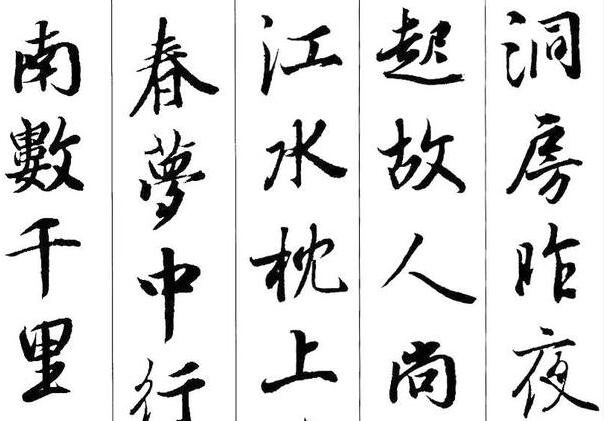 洞房昨夜
起故人尚
江水枕上
春夢中行
南數千里